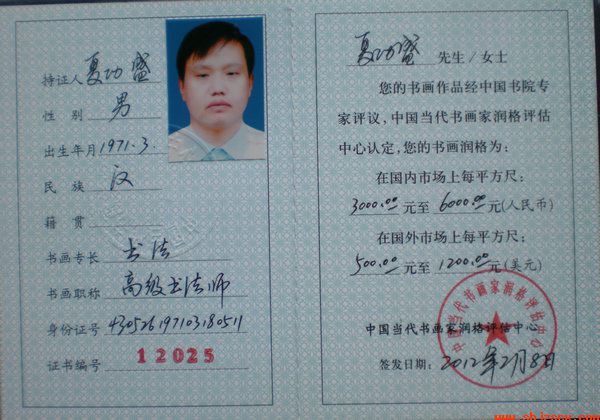 持证人 夏功盛
性 别 男
出生年月 1971.3.
民 族 汉
籍 贯
书画专长 书法
书画职称 高级书法师
身份证号 430526197103180511
证书编号 12025
夏功盛 先生/女士
您的书画作品经中国书院专
家评议,中国当代书画家润格评估
中心认定,您的书画润格为:
在国内市场上每平方尺:
3000.00 元至 6000.00 元(人民币)
在国外市场上每平方尺:
500.00 元至 1200.00 元(美元)
中国当代书画家润格评估中心
中国当代书画家润格评估中心
签发日期: 2012年2月8日